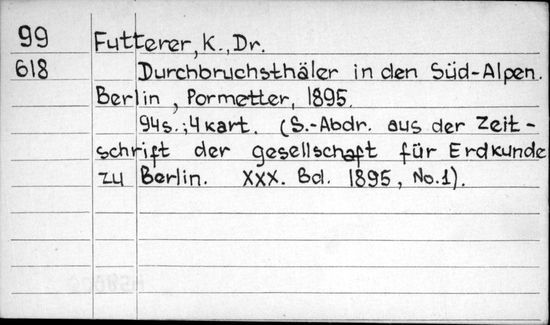 99 Futterer, K., Dr.
618 Durchbruchsthäler in den Süd-Alpen.
Berlin, Pormetter, 1895.
94s.; 4 kart. (S.-Abdr. aus der Zeit-
schrift der gesellschaft für Erdkunde
zu Berlin. XXX. Bd. 1895, No.1).